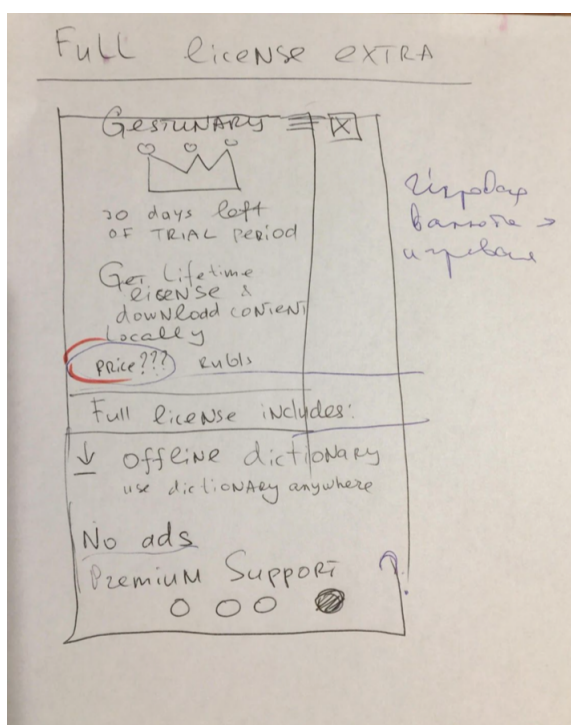 Full license EXTRA
GESTUNARY
30 days left
OF TRIAL PERIOD
Get Lifetime
license &
download content
locally
PRICE??? Rubls
Full license includes:
Offline dictionary
use dictionary anywhere
No ads
Premium Support ?
валюта >
игровая